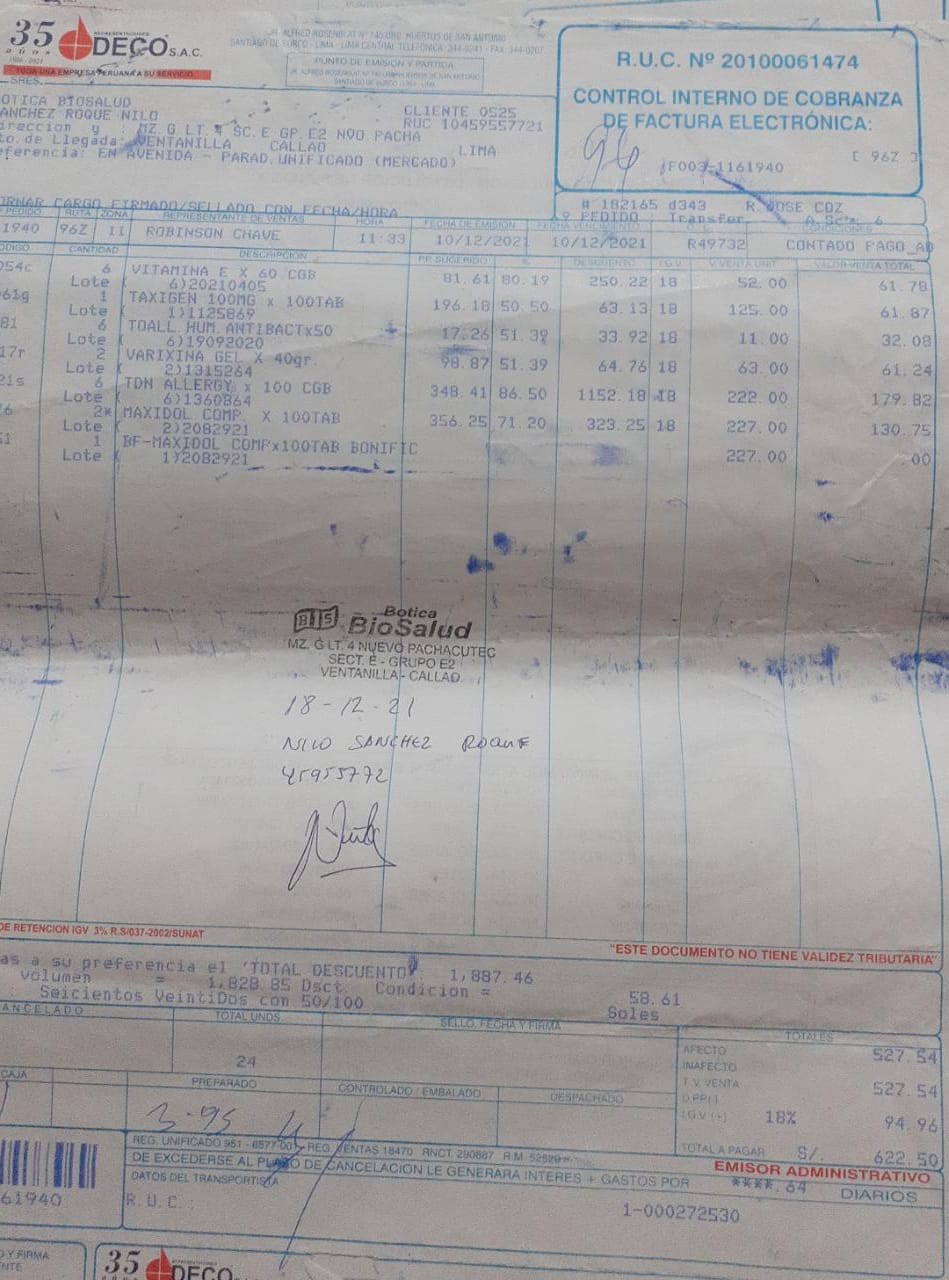 35 años
REPRESENTACIONES
DECO S.A.C.
TODA UNA EMPRESA PERUANA A SU SERVICIO
JR. ALFRED ROSENBLAT Nº 145 URB. HUERTOS DE SAN ANTONIO
SANTIAGO DE SURCO - LIMA - LIMA CENTRAL TELEFÓNICA: 344-0241 - FAX: 344-0267
PUNTO DE EMISIÓN Y PARTIDA
SANTIAGO DE SURCO - LIMA - LIMA
R.U.C. Nº 20100061474
CONTROL INTERNO DE COBRANZA
DE FACTURA ELECTRÓNICA:
96
F003-1161940
[ 96Z ]
SRES.
OTICA BIOSALUD
ANCHEZ ROQUE NILO
CLIENTE 0525
RUC 10459557721
ireccion y : MZ.G LT.4 SC.E GP.E2 NVO.PACHA
to.de Llegada: VENTANILLA CALLAO LIMA
eferencia: EN AVENIDA - PARAD.UNIFICADO (MERCADO)
# 182165 d343 R.JOSE CDZ
ORNAR CARGO FIRMADO/SELLADO CON FECHA/HORA
PEDIDO : Transfer
PEDIDO RUTA ZONA REPRESENTANTE DE VENTAS HORA FECHA DE EMISIÓN FECHA VENCIMIENTO CONDICIONES
1940 96Z 11 ROBINSON CHAVE 11:33 10/12/2021 10/12/2021 R49732 CONTADO PAGO_AD
ÓDIGO CANTIDAD DESCRIPCIÓN PR. SUGERIDO % DESCUENTO I.G.V. V.VENTA UNIT. VALOR VENTA TOTAL
054c 6 VITAMINA E X 60 CGB 81.61 80.19 250.22 18 52.00 61.78
Lote ( 6)20210405
61g 1 TAXIGEN 100MG x 100TAB 196.18 50.50 63.13 18 125.00 61.87
Lote ( 1)1125869
81 6 TOALL.HUM.ANTIBACTx50 17.26 51.39 33.92 18 11.00 32.08
Lote ( 6)19092020
17r 2 VARIXINA GEL X 40gr. 98.87 51.39 64.76 18 63.00 61.24
Lote ( 2)1315264
21s 6 TDN ALLERGY x 100 CGB 348.41 86.50 1152.18 18 222.00 179.82
Lote ( 6)1360864
6 2* MAXIDOL COMP. X 100TAB 356.25 71.20 323.25 18 227.00 130.75
Lote ( 2)2082921
51 1 BF-MAXIDOL COMPx100TAB BONIFIC 227.00 .00
Lote ( 1)2082921
BIS Botica
BioSalud
MZ. G LT. 4 NUEVO PACHACUTEC
SECT. E - GRUPO E2
VENTANILLA - CALLAO
18-12-21
NILO SANCHEZ ROQUE
45955772
DE RETENCION IGV 3% R.S/037-2002/SUNAT
"ESTE DOCUMENTO NO TIENE VALIDEZ TRIBUTARIA"
as a su preferencia el 'TOTAL DESCUENTO': 1,887.46
Volumen = 1,828.85 Dsct. Condicion = 58.61
Seicientos VeintiDos con 50/100 Soles
ANCELADO TOTAL UNDS. SELLO, FECHA Y FIRMA TOTALES
24
AFECTO 527.54
INAFECTO
T.V. VENTA 527.54
D.PP.(-)
I.G.V (+) 18% 94.96
TOTAL A PAGAR S/. 622.50
CAJA PREPARADO CONTROLADO / EMBALADO DESPACHADO
REG. UNIFICADO 951 - 6577-001 - REG. VENTAS 18470 RNCT. 290887
EMISOR ADMINISTRATIVO
DE EXCEDERSE AL PLAZO DE CANCELACION LE GENERARA INTERES + GASTOS POR ****.64 DIARIOS
DATOS DEL TRANSPORTISTA
R.U.C.:
1-000272530
61940
O Y FIRMA
NTE
35 DECO